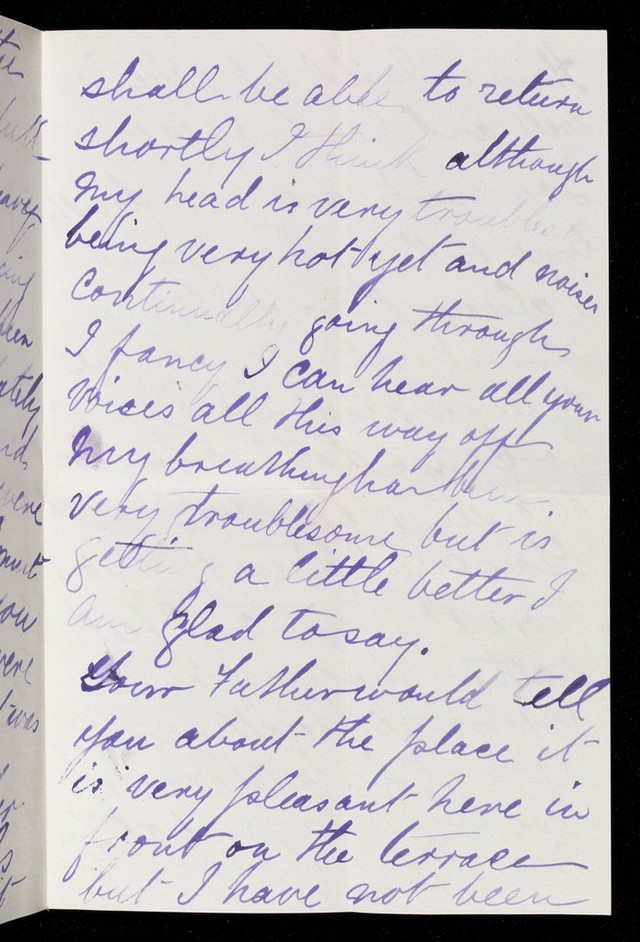 shall be able to return
shortly I think although
My head is very troubles
being very hot yet and noises
continually going through
I fancy I can hear all your
voices all this way off
My breathing has been
very troublesome but is
getting a little better I
am glad to say.
Your Father would tell
you about the place it
is very pleasant here in
front on the terrace
but I have not been